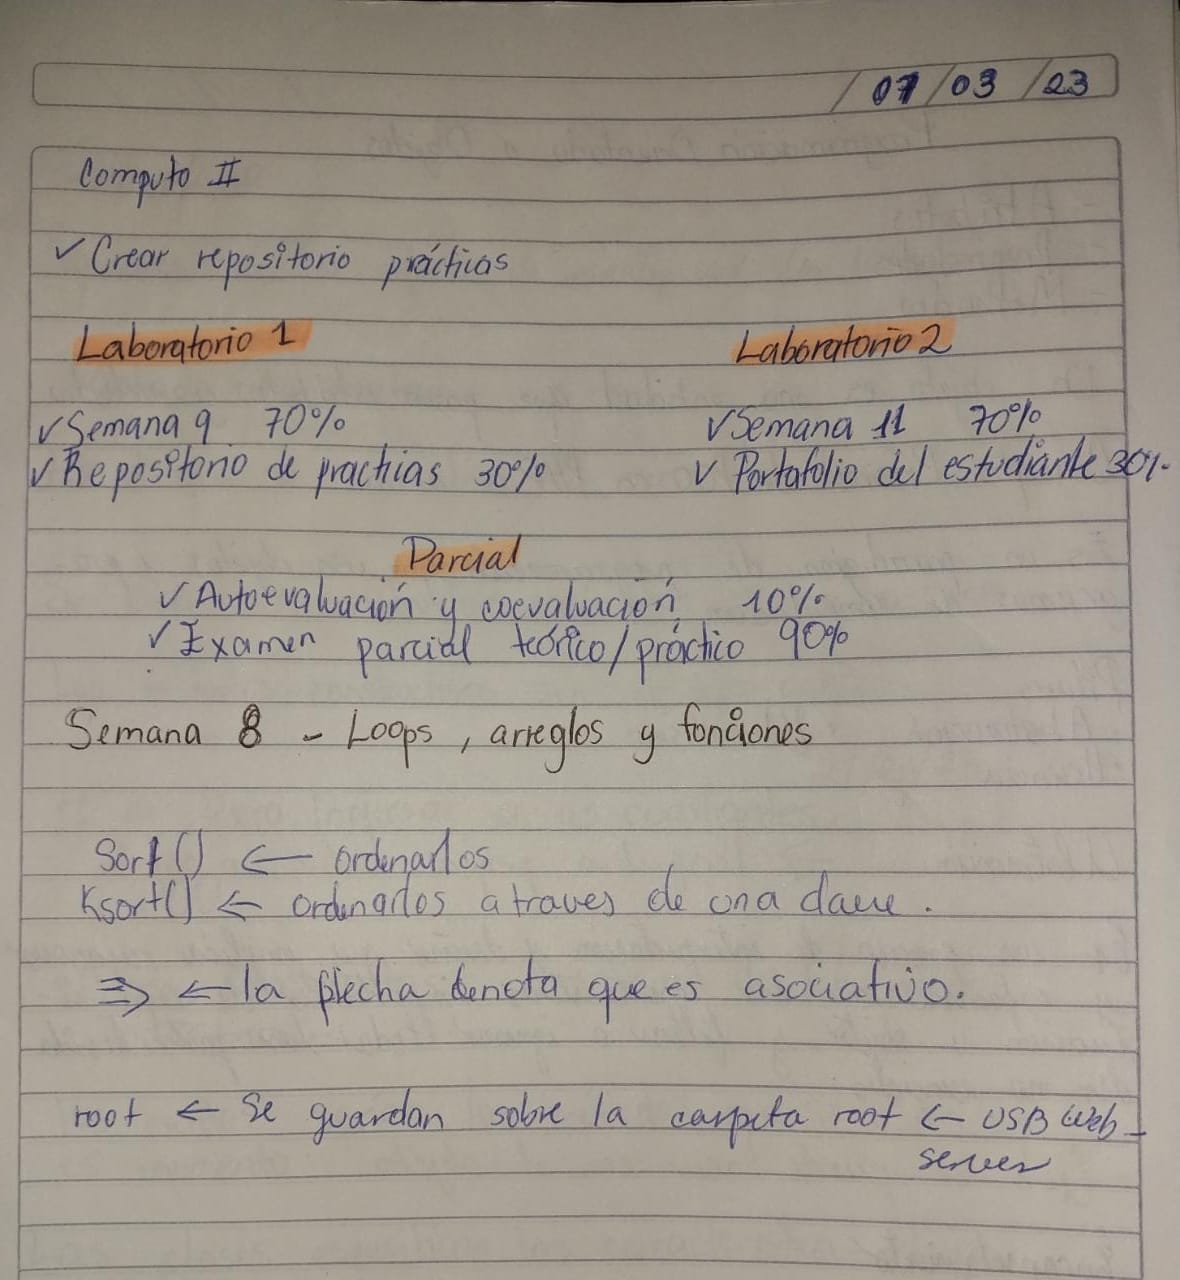 07/03/23
Computo II
✓ Crear repositorio prácticas
Laboratorio 1
Laboratorio 2
✓ Semana 9 70%
✓ Semana 11 70%
✓ Repositorio de practicas 30%
✓ Portafolio del estudiante 30%
Parcial
✓ Autoevaluación y coevaluación 10%
✓ Examen parcial teórico/práctico 90%
Semana 8 - Loops, arreglos y funciones
Sort() ← ordenarlos
Ksort() ← ordenarlos a traves de una clave.
⇒ ← la flecha denota que es asociativo.
root ← Se guardan sobre la carpeta root ← USB Web-
server